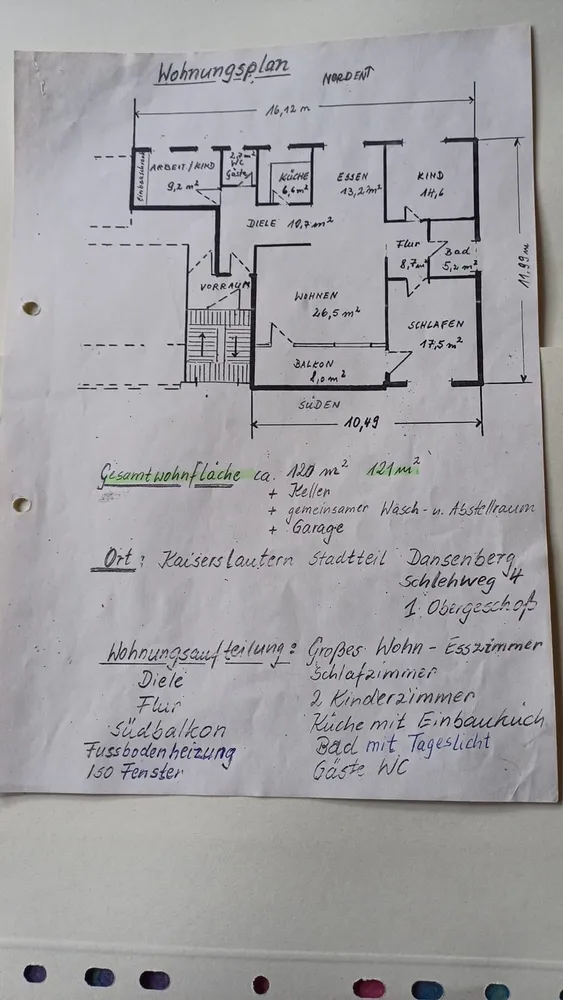 Wohnungsplan
NORDEN
16,12 m
Einbauschrank
ARBEIT/KIND
9,2 m²
WC
Gäste
KÜCHE
6,6 m²
ESSEN
13,2 m²
KIND
14,6
DIELE 10,7 m²
Flur
8,7 m²
Bad
5,2 m²
11,99 m
VORRAUM
WOHNEN
26,5 m²
SCHLAFEN
17,5 m²
BALKON
SÜDEN
10,49
Gesamtwohnfläche ca. 120 m² 121 m²
+ Keller
+ gemeinsamer Wasch- u. Abstellraum
+ Garage
Ort: Kaiserslautern Stadtteil Dansenberg
Schlehweg 4
1. Obergeschoß
Wohnungsaufteilung: Großes Wohn-Esszimmer
Diele Schlafzimmer
Flur 2 Kinderzimmer
Südbalkon Küche mit Einbauküch
Fussbodenheizung Bad mit Tageslicht
Iso Fenster Gäste WC